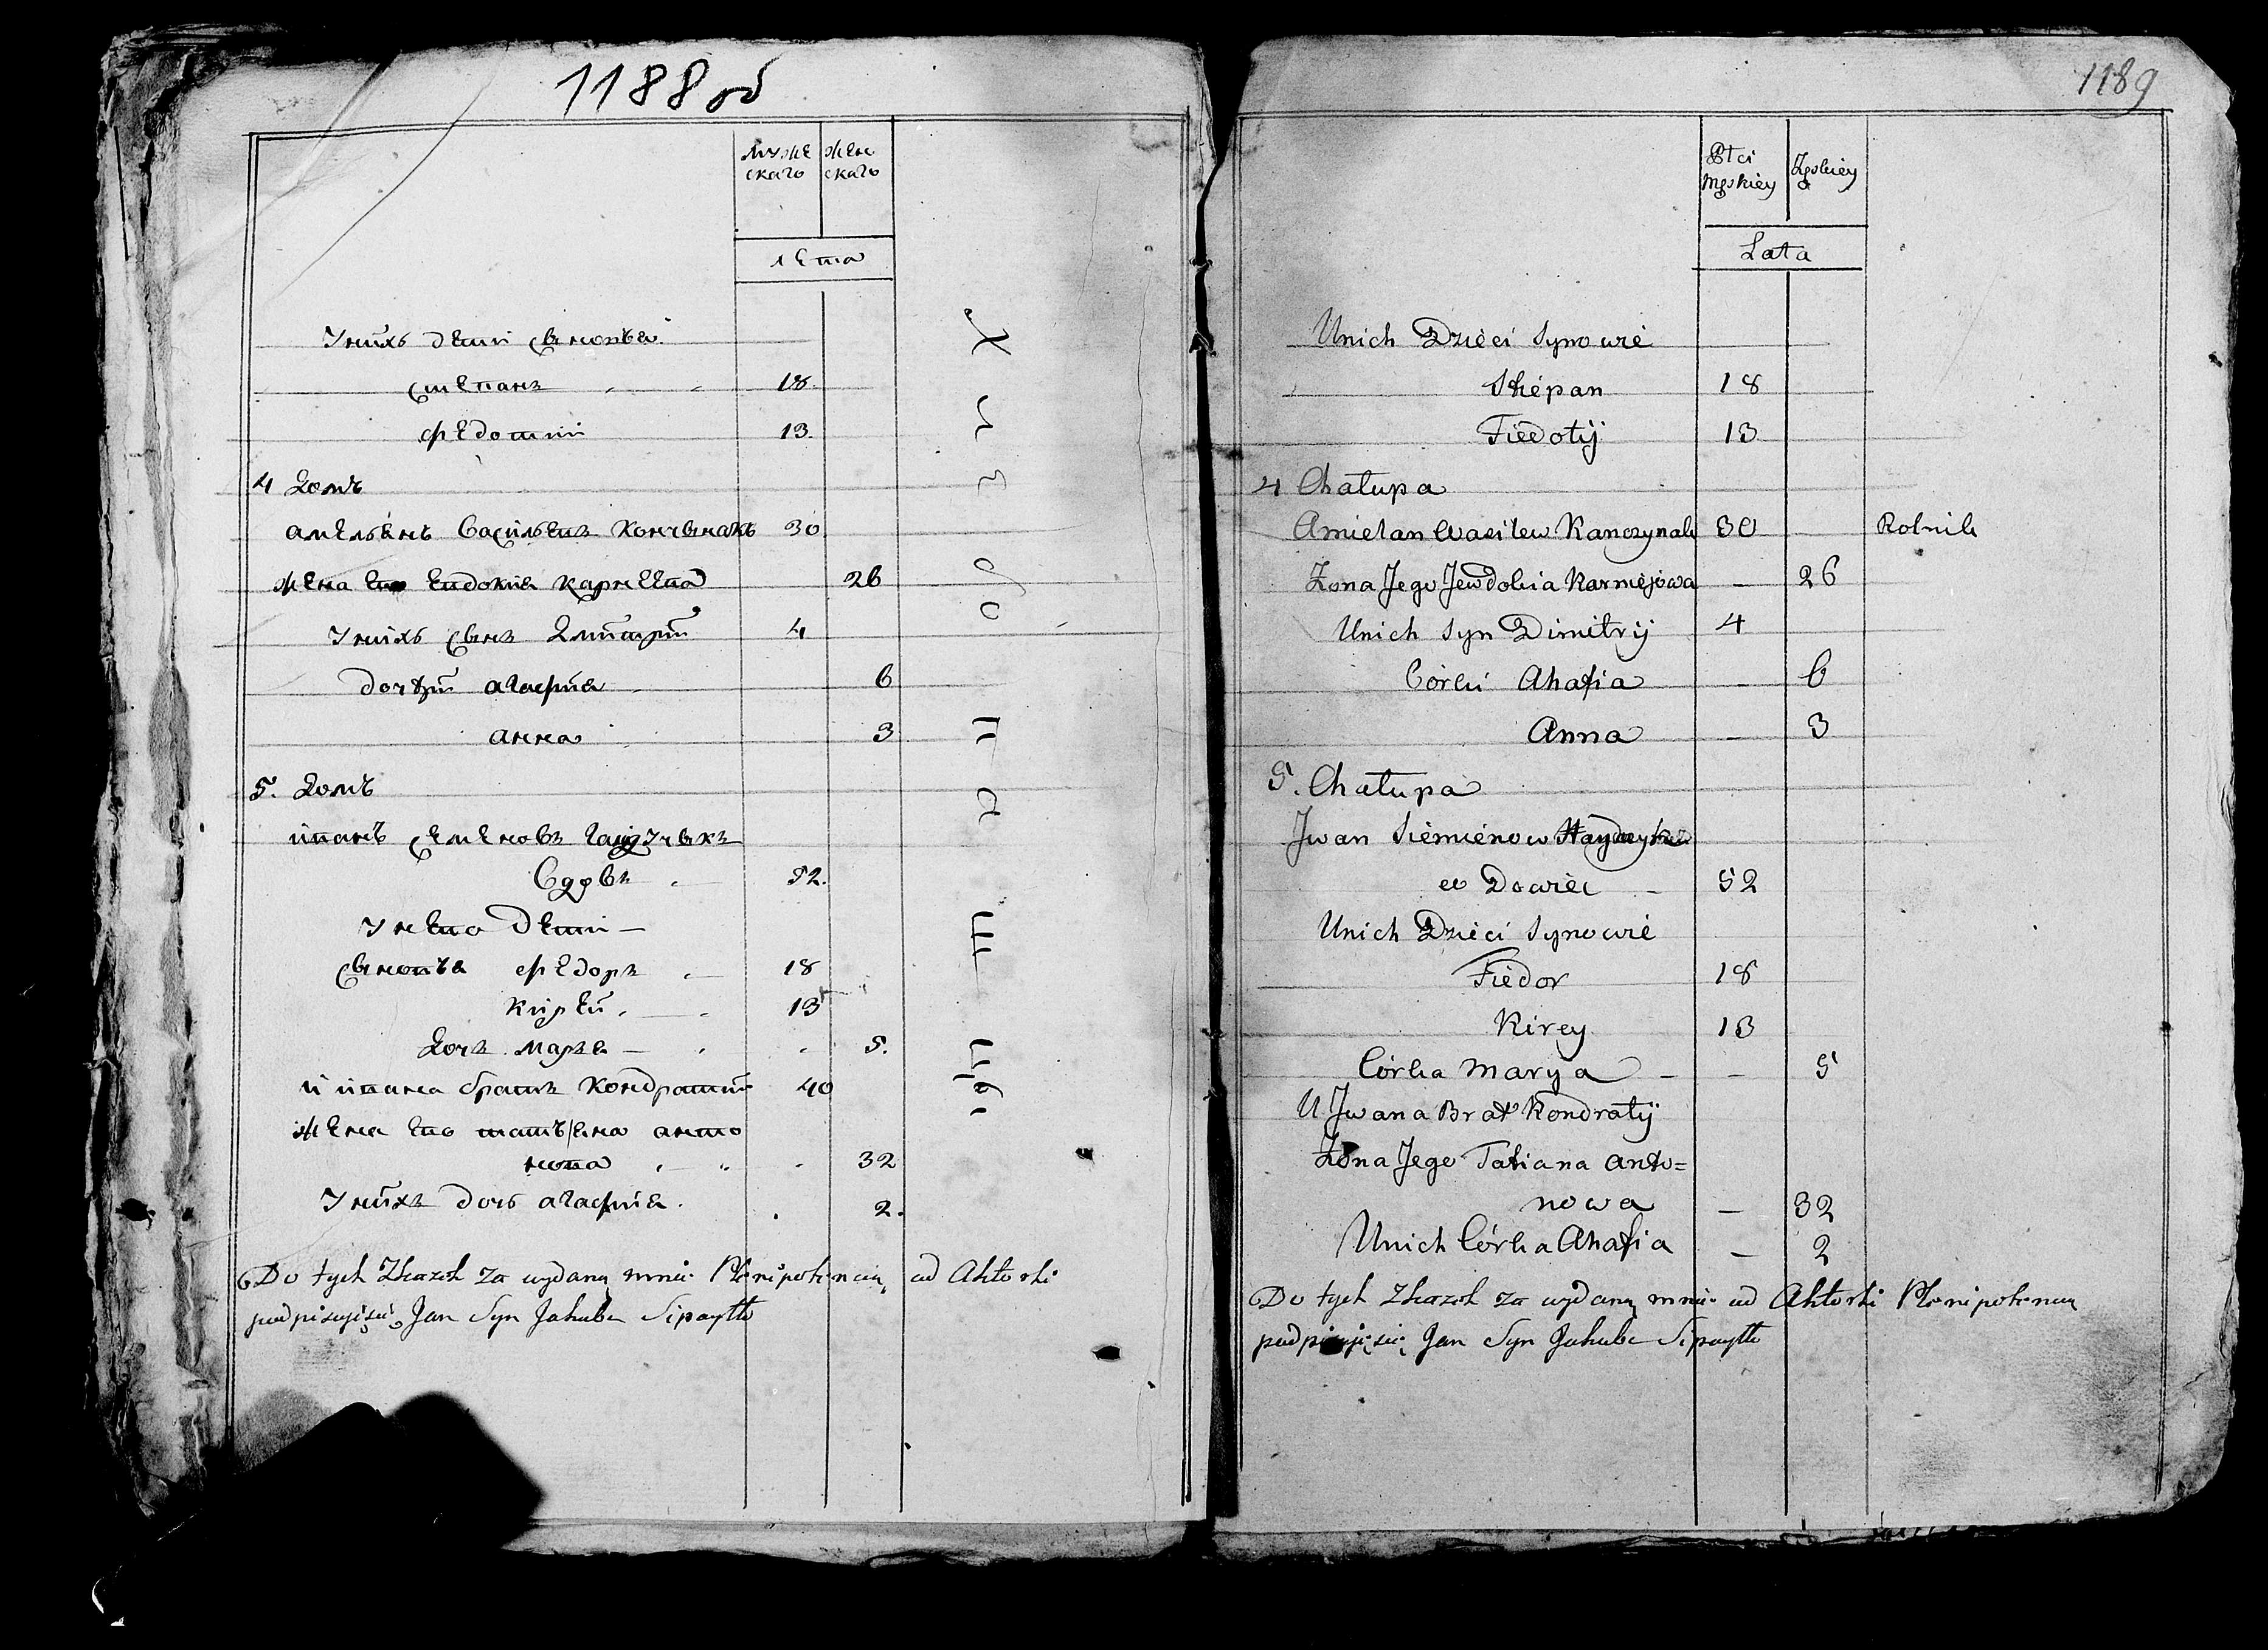 1188 об
муже
скаго
жен
скаго
лета
У нихъ дети сыновья
степанъ 18
федотий 13
4 Домъ
амельянъ васильевъ кончынакъ 30
жена ево евдокия карнеева 26
У нихъ сынъ дмитрий 4
дочери агафия 6
анна 3
5. Домъ
иванъ семеновъ гайдучыкъ
вдовъ 52.
У него дети
сыновья федоръ 18
кирей 13
дочъ маръя 5.
и ивана братъ кондратий 40
жена ево татьяна анто
нова 32
У нихъ дочь агафия 2.
хлебопашцы
Do tych Zkazek za wydaną mnie Plenipotencią od Aktorki
podpisuję się Jan Syn Jakuba Sipayłło
1189
Płci
męskiey
Żęskiey
Lata
Unich Dzieci Synowie
Stiepan 18
Fiedotij 13
4 Chałupa
Amielan Wasilew Kanczynak 30 Rolnik
Żona Jego Jewdokia Karniejowa — 26
Unich Syn Dimitrij 4
Córki Ahafia — 6
Anna — 3
5. Chałupa
Jwan Siemienow
w Dowiec — 52
Unich Dzieci Synowie
Fiedor 18
Kirey 13
Córka Marya — — 5
U Jwana Brat Kondratij
Żona Jego Tatiana Anto=
nowa — 32
Unich Córka Ahafia — 2
Do tych Zkazek za wydaną mnie od Aktorki Plenipotencią
podpisuję się Jan Syn Jakuba Sipayłło